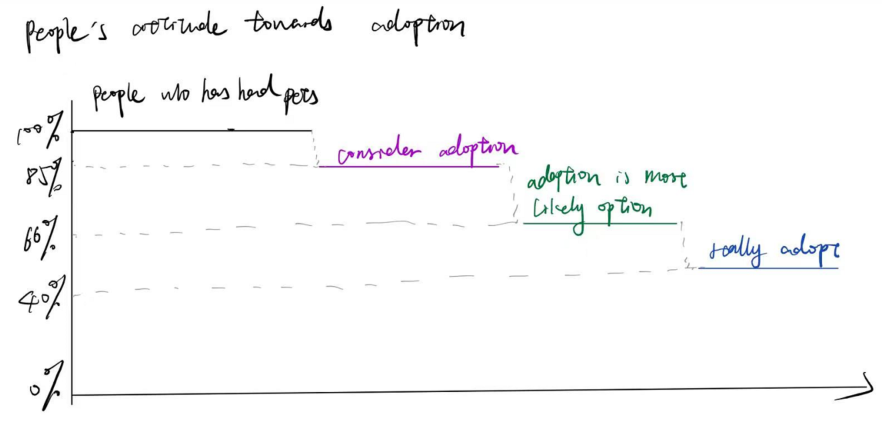 People's attitude towards adoption
People who has had pets
100%
consider adoption
85%
adoption is more
likely option
66%
really adopt
40%
0%